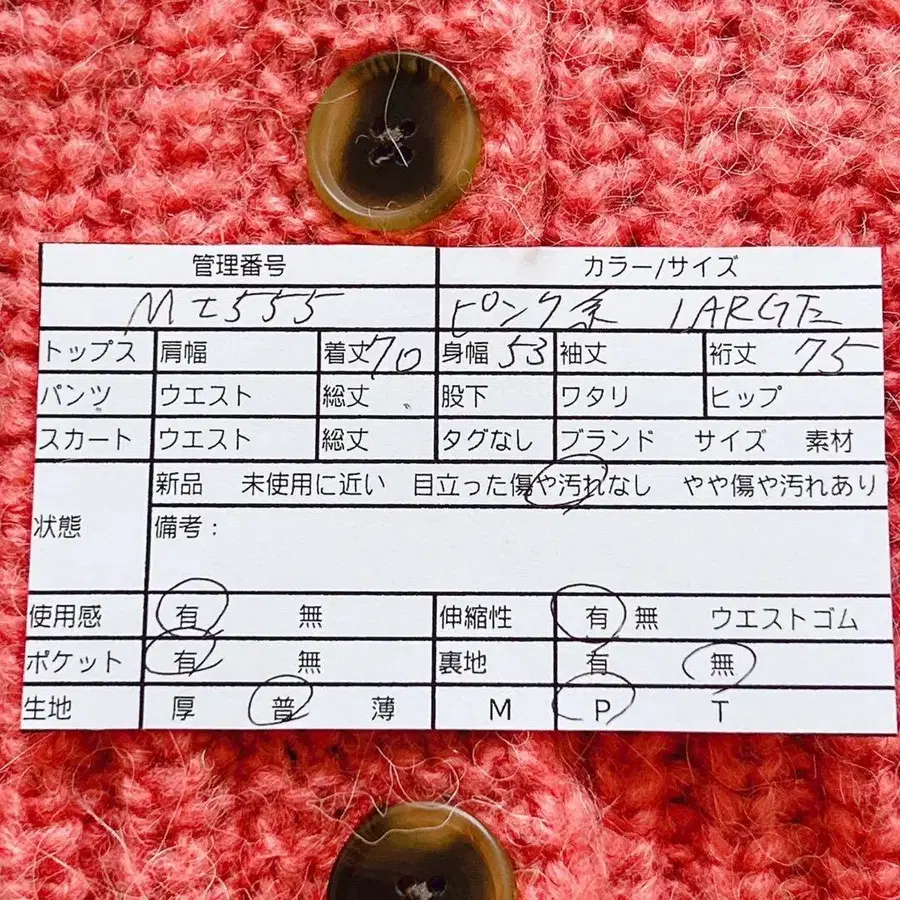 管理番号 カラー/サイズ
Mt555 ピンク系 LARGE
トップス 肩幅 着丈70 身幅53 袖丈 裄丈 75
パンツ ウエスト 総丈 股下 ワタリ ヒップ
スカート ウエスト 総丈 タグなし ブランド サイズ 素材
新品 未使用に近い 目立った傷や汚れなし やや傷や汚れあり
状態 備考：
使用感 有 無 伸縮性 有 無 ウエストゴム
ポケット 有 無 裏地 有 無
生地 厚 普 薄 M P T